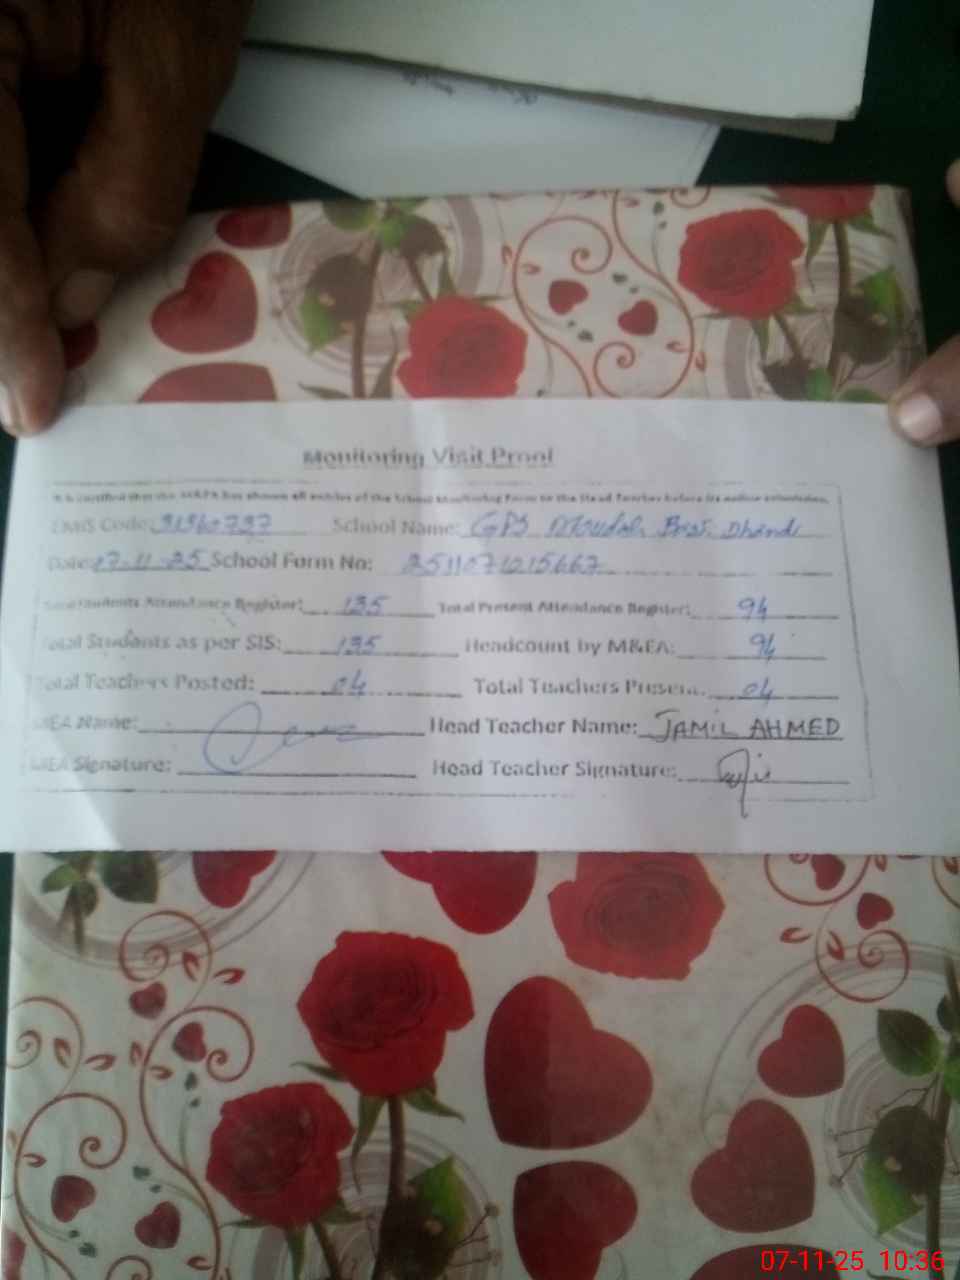 Monitoring Visit Proof
It is certified that the M&EA has shown all entries of the School Monitoring Form to the Head Teacher before its online submission.
EMIS Code: 31360737 School Name: GPS Dhand
Date: 07-11-25 School Form No: 2511071015667
Total Students Attendance Register: 135 Total Present Attendance Register: 94
Total Students as per SIS: 135 Headcount by M&EA: 94
Total Teachers Posted: 04 Total Teachers Present: 04
MEA Name: Head Teacher Name: JAMIL AHMED
MEA Signature: Head Teacher Signature:
07-11-25 10:36